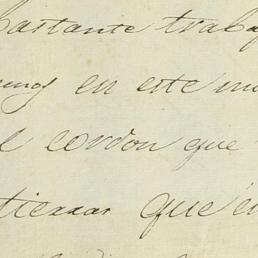 bastante trabaj
en este m
el cordon que
tierras que en